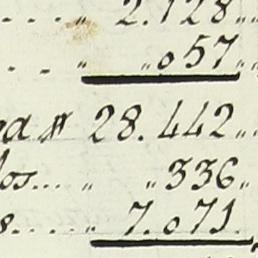 .... „ 2.128„
.. „ „057„
nd $ 28.442„
los... „ „336„
s..... „ 7.071.